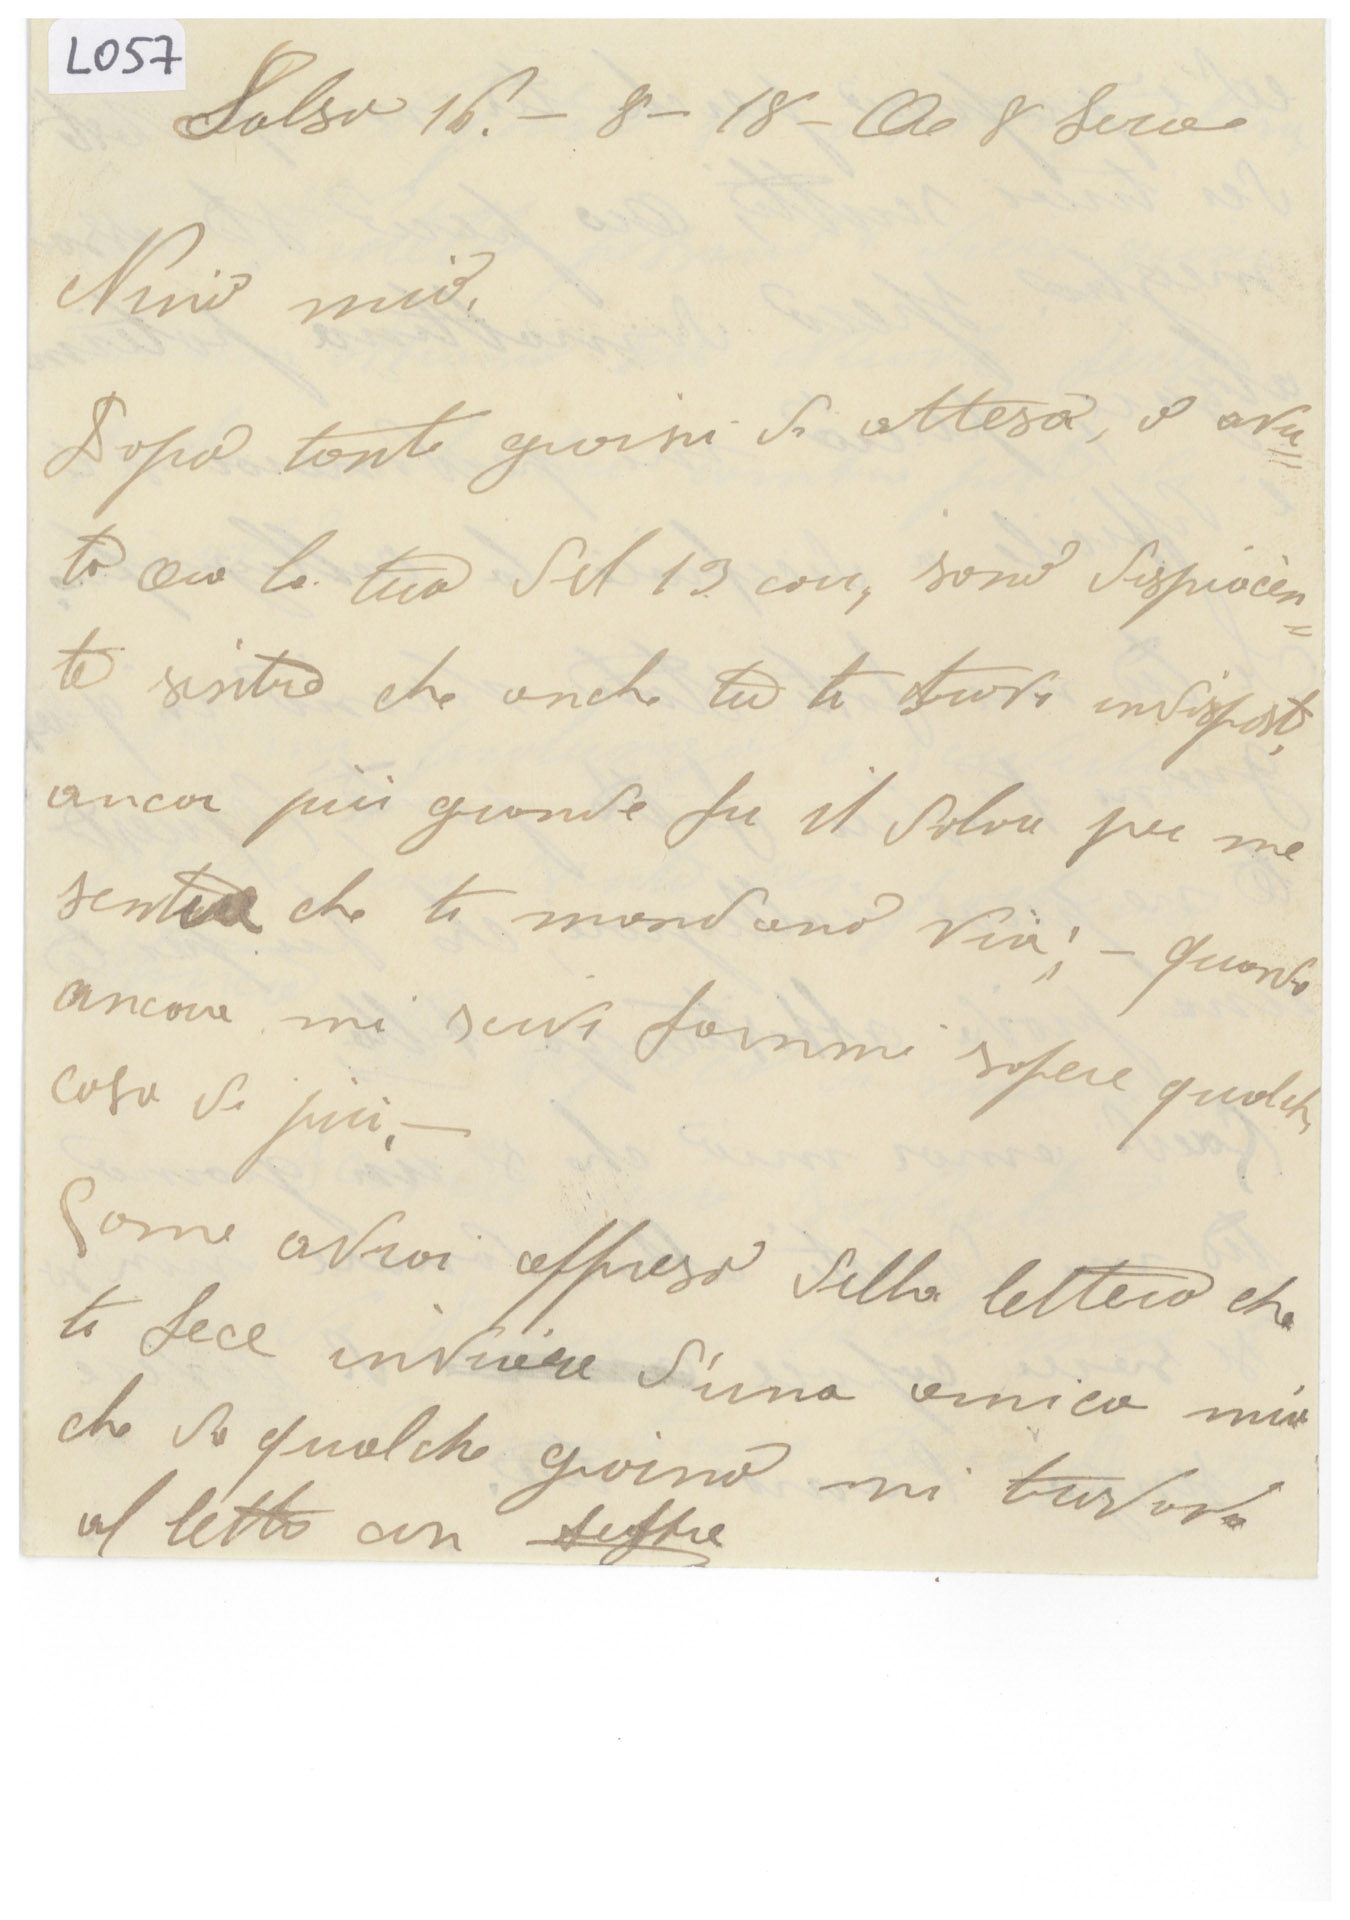 L057
Salso 16. - 8 - 18 - Ore 8 Sera
Nino mio.
Dopo tanti giorni di attesa, ò avu=
to ora la tua del 13 corr, sono dispiacen=
te sintire che anche tu ti trovi indisposto,
ancor più grande fu il dolor per me
sentire che ti mandano via; - quando
ancora mi scrivi fammi sapere qualche
cosa di più. -
Come avrai appreso dalla lettera che
ti fece inviare d'una amica mia
che da qualche giorno mi trovavo
al letto con febbre